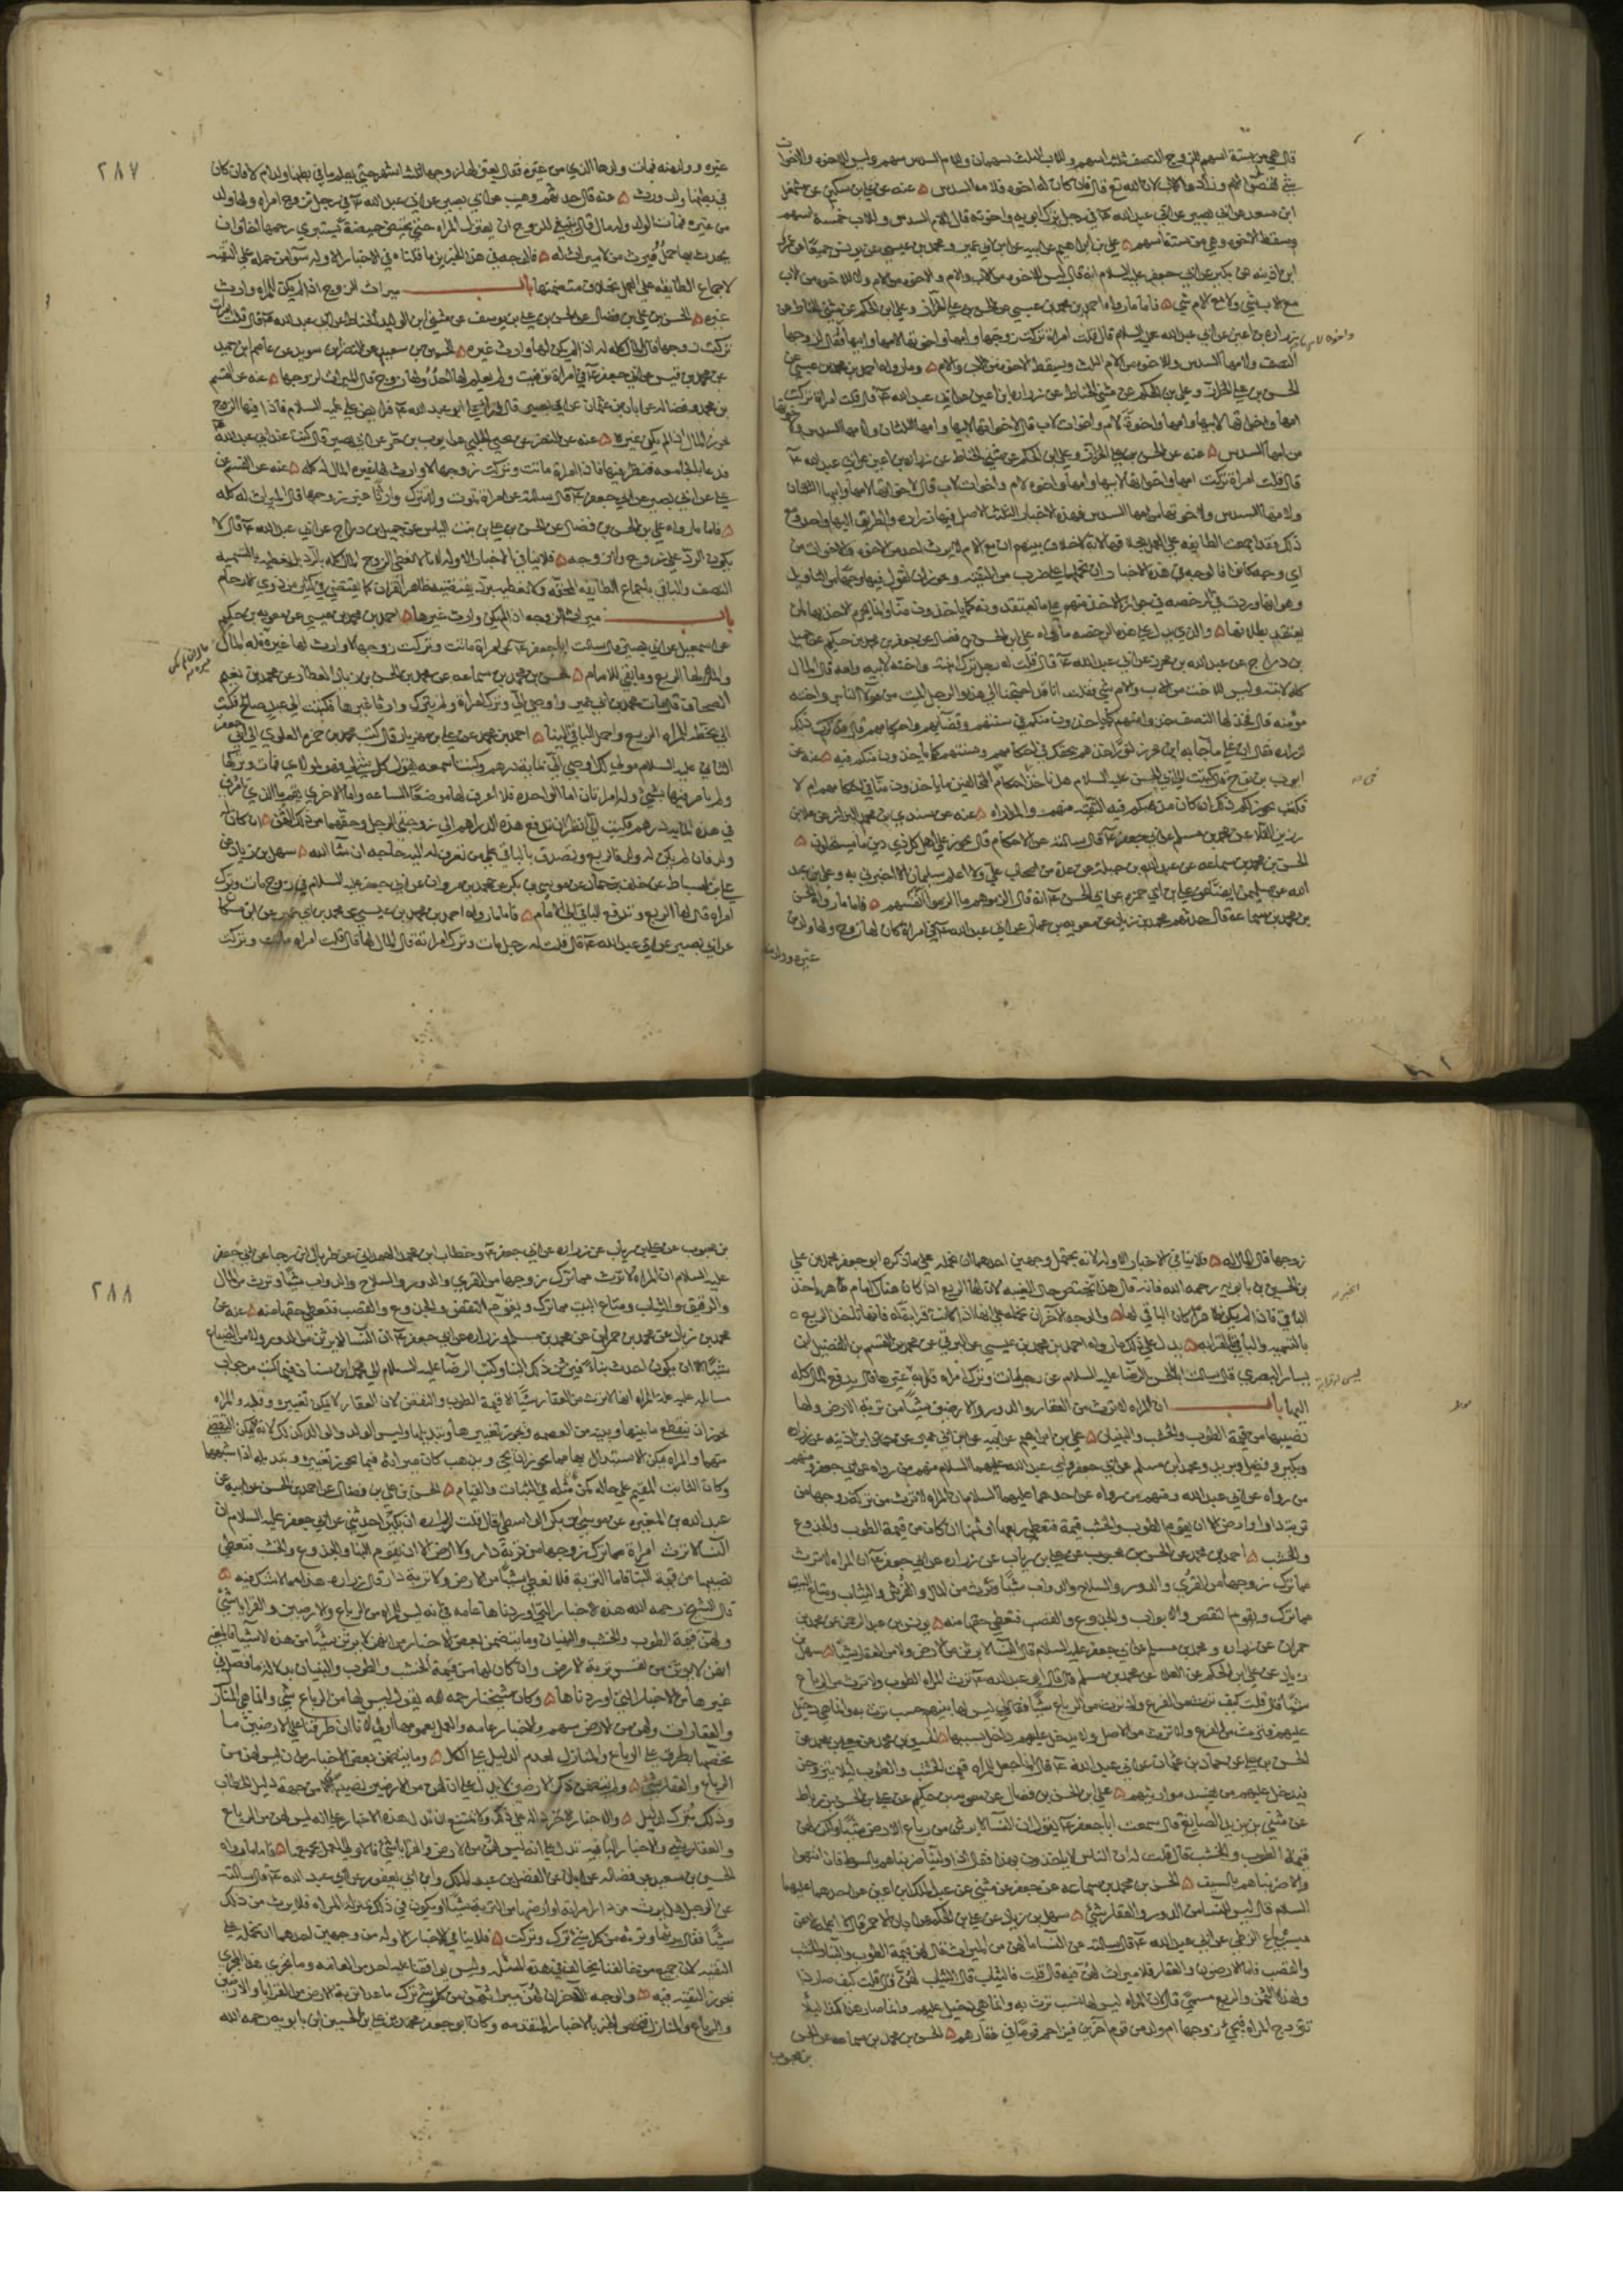 قال هي من ستة اسهم للزوج النصف ثلثة اسهم وللاب الثلث سهمان وللام السدس سهم وليس للاخوة والاخوات
شيء نقصوا الام وزادوا الاب لان الله تع قال فان كان له اخوة فلامه السدس عنه عن علي بن سكين عن مشمعل
ابن سعد عن ابي بصير عن ابي عبد الله ع في رجل ترك ابويه واخوته قال للام السدس وللاب خمسة اسهم
وسقط الاخوة وهي من ستة اسهم علي بن ابراهيم عن ابيه عن ابن ابي عمير ومحمد بن عيسى عن يونس جميعا عن عمر
ابن اذينة عن بكير عن ابي جعفر عليه السلام انه قال ليس للاخوة من الاب والام ولا الاخوة من الام ولا الاخوة من الاب
مع الاب شيء ولا مع الام شيء فاما ما رواه احمد بن محمد بن عيسى عن الحسن بن علي الخزاز وعلي بن الحكم عن مثنى الحناط عن
زرارة بن اعين عن ابي عبد الله عليه السلام قال قلت امراة تركت زوجها وامها واخوتها لامها وابيها فقال لزوجها
النصف ولامها السدس وللاخوة من الام الثلث وسقط الاخوة من الاب والام وما رواه احمد بن محمد بن عيسى عن
الحسن بن علي الخزاز وعلي بن الحكم عن مثنى الحناط عن زرارة بن اعين عن ابي عبد الله ع قال قلت امراة تركت
امها واخواتها لابيها وامها واخوة لام واخوات لاب قال لاخواتها لابيها وامها الثلثان ولامها السدس ولاخوتها
من امها السدس عنه عن الحسن بن علي الخزاز وعلي بن الحكم عن مثنى الحناط عن زرارة بن اعين عن ابي عبد الله ع
قال قلت امراة تركت امها واخواتها لابيها وامها واخوة لام واخوات لاب قال لاخواتها لامها وابيها الثلثان
ولامها السدس ولاخوتها من امها السدس فهذه الاخبار الثلثة الاصل فيها زرارة والطريق اليها واحد ومع
ذلك فقد اجمعت الطايفة على العمل بخلافها لانه لا خلاف بينهم ان مع الام لا يرث احد من الاخوة والاخوات من
اي وجه كانوا فالوجه في هذه الاخبار ان نحملها على ضرب من التقية ويجوز ان نقول فيها وجها من التاويل
وهو انها وردت في الرخصة في جواز الاخذ منهم على ما يعتقدونه كما ياخذون منا وانما يحرم الاخذ بها لمن
يعتقد بطلانها والذي يدل على هذه الرخصة ما رواه علي بن الحسن بن فضال عن جعفر بن محمد بن حكيم عن جميل
بن دراج عن عبد الله بن محرز عن ابي عبد الله ع قال قلت له رجل ترك ابنته واخته لابيه وامه قال المال
كله لابنته وليس للاخت من الاب والام شيء فقلت انا قد احتجنا الى هذا والرجل الميت من هؤلاء الناس واخته
مؤمنة قال فخذ لها النصف خذوا منهم كما ياخذون منكم في سنتهم وقضاياهم واحكامهم قال فذكرت ذلك
لزرارة فقال ان على ما جاء به ابن محرز لنورا خذهم بحقك في احكامهم وسنتهم كما ياخذون منكم فيه عنه عن
ايوب بن نوح قال كتبت الى ابي الحسن عليه السلام هل ناخذ في احكام المخالفين ما ياخذون منا في احكامهم ام لا
فكتب يجوز لكم ذلك ان كان مذهبكم فيه التقية منهم والمداراة عنه عن سندي بن محمد البزاز عن علا بن
رزين القلا عن محمد بن مسلم عن ابي جعفر ع قال سالته عن الاحكام قال تجوز على اهل كل ذي دين ما يستحلون
الحسن بن محمد بن سماعة عن عبد الله بن جبلة عن عدة من اصحاب علي ولا اعلم سليمان الا اخبرني به وعلي بن عبد
الله عن سليمن ايضا عن علي بن ابي حمزة عن ابي الحسن ع انه قال الزموهم ما الزموا انفسهم فاما ما رواه الحسن
بن محمد بن سماعة قال حدثهم محمد بن زياد عن معوية بن عمار عن ابي عبد الله ع في امراة كان لها زوج ولها ولد من
غيره وولد منه
٢٨٧
غيره وولد منه فمات ولدها الذي من غيره فقال يعتزلها زوجها ثلثة اشهر حتى يعلم ما في بطنها ولد ام لا فان كان
في بطنها ولد ورث عنه قال حدثهم وهيب عن ابي بصير عن ابي عبد الله ع في رجل تزوج امراة ولها ولد
من غيره فمات الولد وله مال قال ينبغي للزوج ان يعتزل المراة حتى تحيض حيضة تستبري رحمها اخاف ان
يحدث بها حمل فيرث من لا ميراث له فالوجه في هذين الخبرين ما قلناه في الاخبار الاولة سواء من حمله على التقية
لاجماع الطايفة على العمل بخلاف متضمنها باب ميراث الزوج اذا لم يكن للمراة وارث
غيره الحسن بن علي بن فضال عن الحسن بن علي بن يوسف عن مثنى بن الوليد الحناط عن ابي عبد الله ع قال قلت امراة
تركت زوجها قال المال كله له اذا لم يكن لها وارث غيره الحسين بن سعيد عن النضر بن سويد عن عاصم بن حميد
عن محمد بن قيس عن ابي جعفر ع في امراة توفيت ولم يعلم لها احد ولها زوج قال الميراث لزوجها عنه عن القسم
بن محمد وفضالة عن ابان بن عثمان عن ابي بصير قال قرا علي ابو عبد الله ع فرايض علي عليه السلام فاذا فيها الزوج
يحوز المال اذا لم يكن غيره عنه عن النضر عن يحيى الحلبي عن ايوب بن حر عن ابي بصير قال كنت عند ابي عبد الله ع
فدعا بالجامعة فنظر فيها فاذا امراة ماتت وتركت زوجها لا وارث لها غيره المال له كله عنه عن القسم عن
علي عن ابي بصير عن ابي جعفر ع قال سالته عن امراة تموت ولا تترك وارثا غير زوجها قال الميراث له كله
فاما ما رواه علي بن الحسن بن فضال عن الحسن بن علي بن بنت الياس عن جميل بن دراج عن ابي عبد الله ع قال لا
يكون الرد على زوج ولا زوجة فلا ينافي الاخبار الاولة لانا لا نعطي الزوج المال كله بالرد بل نعطيه بالتسمية
النصف والباقي باجماع الطايفة المحقة
باب ميراث الزوجة اذا لم يكن وارث غيرها احمد بن محمد بن عيسى عن معوية بن حكيم
عن اسمعيل عن ابي بصير قال سالت ابا جعفر ع عن امراة ماتت وتركت زوجها لا وارث لها غيره قال له المال
والمراة لها الربع وما بقي للامام الحسن بن محمد بن سماعة عن محمد بن الحسن بن زياد العطار عن محمد بن نعيم
الصحاف قال مات محمد بن ابي عمير واوصى الي وترك امراة ولم يترك وارثا غيرها فكتبت الى عبد صالح فكتب
الي بخطه للمراة الربع واحمل الباقي الينا احمد بن محمد عن علي بن مهزيار قال كتب محمد بن حمزة العلوي الى ابي جعفر
الثاني عليه السلام مولى لك اوصى الي بمائة درهم وكنت اسمعه يقول كل شيء لي فهو لمولاي فمات وتركها
ولم يامر فيها بشيء وله امراتان اما الواحدة فلا اعرف لها موضعا الساعة واما الاخرى بقم ما الذي تامر في
في هذه المائة درهم فكتب الي انظر ان تدفع هذه الدراهم الى زوجتي الرجل وحقهما من ذلك الثمن ان كان له
ولد فان لم يكن له ولد فالربع وتصدق بالباقي على من تعرف له اليه حاجة ان شا الله سهل بن زياد عن
علي بن اسباط عن خلف بن حماد عن موسى بن بكر عن محمد بن مروان عن ابي جعفر عليه السلام في زوج مات وترك
امراة قال لها الربع وتدفع الباقي الى الامام فاما ما رواه احمد بن محمد بن عيسى عن محمد بن ابي عمير عن ابن مسكان
عن ابي بصير عن ابي عبد الله ع قال قلت له رجل مات وترك امراته قال المال لها قال قلت امراة ماتت وتركت
زوجها قال المال له فلا ينافي الاخبار الاولة لانه يحتمل وجهين احدهما ان نحمله على ما ذكره ابو جعفر محمد بن علي
بن الحسين بن بابويه رحمه الله فانه قال هذا يختص حال الغيبة لان لها الربع اذا كان هناك امام ظاهر ياخذ
الباقي فاذا لم يكن ظاهرا كان الباقي لها والوجه الاخر ان نحمله على انها اذا كانت ذا قرابة له فانها تاخذ الربع
بالتسمية والباقي بالقرابة يدل على ذلك ما رواه احمد بن محمد بن عيسى عن البرقي عن محمد بن القسم بن الفضيل بن
يسار البصري قال سالت ابا الحسن الرضا عليه السلام عن رجل مات وترك امراة قرابة ليس له قرابة غيرها قال يدفع المال كله
اليها باب ان المراة لا ترث من العقار والدور والارضين شيئا من تربة الارض ولها
نصيبها من قيمة الطوب والخشب والبنيان علي بن ابراهيم عن ابيه عن ابن ابي عمير عن عمر بن اذينة عن زرارة
وبكير وفضيل وبريد ومحمد بن مسلم عن ابي جعفر وابي عبد الله عليهما السلام منهم من رواه عن ابي جعفر ومنهم
من رواه عن ابي عبد الله ومنهم من رواه عن احدهما عليهما السلام ان المراة لا ترث من تركة زوجها من
تربة دار او ارض الا ان يقوم الطوب والخشب قيمة فتعطى ربعها او ثمنها ان كان من قيمة الطوب والجذوع
والخشب احمد بن محمد عن الحسن بن محبوب عن علي بن رياب عن زرارة عن ابي جعفر ع ان المراة لا ترث
مما ترك زوجها من القرى والدور والسلاح والدواب شيئا وترث من المال والفرش والثياب ومتاع البيت
مما ترك ويقوم النقض والابواب والجذوع والقصب فتعطى حقها منه يونس بن عبد الرحمن عن محمد بن
حمران عن زرارة ومحمد بن مسلم عن ابي جعفر عليه السلام قال النسا لا يرثن من الارض ولا من العقار شيئا سهل بن
زياد عن علي بن الحكم عن العلا عن محمد بن مسلم قال قال ابو عبد الله ع ترث المراة الطوب ولا ترث من الرباع
شيئا قال قلت كيف ترث من الفرع ولا ترث من الرباع شيئا فقال لي ليس لها منهم حسب ترث به وانما هي دخيل
عليهم فترث من الفرع ولا ترث من الاصل ولا يدخل عليهم داخل بسببها الحسين بن محمد عن معلى بن محمد عن
الحسن بن علي عن حماد بن عثمان عن ابي عبد الله ع قال انما جعل للمراة قيمة الخشب والطوب ليلا يتزوجن
فيدخل عليهم من يفسد مواريثهم علي بن الحسن بن فضال عن معوية بن حكيم عن علي بن الحسن بن رباط
عن مثنى بن يزيد الصايغ قال سمعت ابا جعفر ع يقول ان النسا لا يرثن من رباع الارض شيئا ولكن لهن
قيمة الطوب والخشب قال قلت له ان الناس لا ياخذون بهذا فقال اذا ولينا ضربناهم بالسوط فان انتهوا
والا ضربناهم بالسيف الحسن بن محمد بن سماعة عن جعفر عن مثنى عن عبد الملك بن اعين عن احدهما عليهما
السلام قال ليس للنسا من الدور والعقار شيء سهل بن زياد عن علي بن الحكم عن ابان الاحمر قال لا اعلمه الا عن
ميسر بياع الزطي عن ابي عبد الله ع قال سالته عن النسا ما لهن من الميراث قال لهن قيمة الطوب والبنا والخشب
والقصب فاما الارضون والعقار فلا ميراث لهن فيه قال قلت فالثياب قال الثياب لهن قال قلت كيف صار ذا
ولهذه الثمن والربع مسمى قال لان المراة ليس لها نسب ترث به وانما هي دخيل عليهم وانما صار هذا كذا ليلا
تتزوج المراة فيجيء زوجها او ولد من قوم اخرين فيزاحم قوما في عقارهم الحسن بن محمد بن سماعة عن الحسن
بن محبوب
٢٨٨
بن محبوب عن علي بن رياب عن زرارة عن ابي جعفر ع وخطاب ابن محمد الهمداني عن طربال بن رجا عن ابي جعفر
عليه السلام ان المراة لا ترث مما ترك زوجها من القرى والدور والسلاح والدواب شيئا وترث من المال
والرقيق والثياب ومتاع البيت مما ترك ويقوم النقض والجذوع والقصب فتعطى حقها منه عنه عن
محمد بن زياد عن محمد بن حمران عن محمد بن مسلم وزرارة عن ابي جعفر ع ان النسا لا يرثن من الدور ولا من الضياع
شيئا الا ان يكون احدث بناء فيرثن ذلك البنا وكتب الرضا عليه السلام الى محمد بن سنان فيما كتب من جواب
مسايله علة المراة انها لا ترث من العقار شيئا الا قيمة الطوب والنقض لان العقار لا يمكن تغييره وقلبه والمراة
يجوز ان ينقطع ما بينها وبينه من العصمة ويجوز تغييرها وتبديلها وليس الولد والوالد كذلك لانه لا يمكن التفصي
منهما والمراة يمكن الاستبدال بها فما يجوز ان يجيء ويذهب كان ميراثه فيما يجوز تغييره وتبديله اذا اشبههما
وكان الثابت المقيم على حاله كمن مثله في الثبات والقيام الحسن بن علي بن فضال عن احمد بن الحسن عن ابيه عن
عبد الله بن المغيرة عن موسى بن بكر الواسطي قال قلت لزرارة ان بكيرا حدثني عن ابي جعفر عليه السلام ان
النسا لا ترث امراة مما ترك زوجها من تربة دار ولا ارض الا ان يقوم البنا والجذوع والخشب فتعطى
نصيبها من قيمة البنا فاما التربة فلا تعطى شيئا من الارض ولا تربة دار قال زرارة هذا مما لا شك فيه
قال الشيخ رحمه الله هذه الاخبار التي اوردناها عامة في انه ليس للمراة من الرباع والارضين والقرايا شيء
ولهن قيمة الطوب والخشب والبنيان وما يتضمن بعض الاخبار من انهن لا يرثن شيئا من هذه الاشيا فالمعنى
انهن لا يرثن من نفس تربة الارض وان كان لهن من قيمة الخشب والطوب والبنيان بدلالة ما فصل في
غيرها من الاخبار التي اوردناها وكان شيخنا رحمه الله يقول ليس لها من الرباع شيء وانما هي المنازل
والعقارات ولهن من الارض سهم والاخبار عامة والعمل بعمومها اولى لانا ان طرقنا على الارضين ما
يخصها يطرق على الرباع والمنازل لعدم الدليل على الكل وما يتضمن بعض الاخبار من ان ليس لهن من
الرباع والعقار شيء ولم يتضمن ذكر الارضين لا يدل على ان لهن من الارضين نصيبا الا من جهة دليل الخطاب
وذلك يترك لدليل والاخبار الاخر دالة على ذلك ولا يمتنع ان تدل هذه الاخبار على انه ليس لهن من الرباع
والعقار شيء والاخبار الباقية تدل على انه ليس لهن من الارض والقرايا شيء فالاولى العمل بجميعها فاما ما رواه
الحسين بن سعيد عن فضالة عن ابان عن الفضل بن عبد الملك وابن ابي يعفور عن ابي عبد الله ع قال سالته
عن الرجل هل يرث من دار امراته او ارضها من التربة شيئا او يكون في ذلك بمنزلة المراة فلا يرث من ذلك
شيئا فقال يرثها وترثه من كل شيء ترك وتركت فلا ينافي الاخبار الاولة من وجهين احدهما ان نحمله على
التقية لان جميع من خالفنا يخالف في هذه المسئلة وليس يوافقنا عليها احد من العامة وما يجري هذا المجرى
يجوز التقية فيه والوجه الاخر ان لهن ميراثهن من كل شيء ترك ما عدا تربة الارض من القرايا والارضين
والرباع والمنازل فنخص الخبر بالاخبار المتقدمة وكان ابو جعفر محمد بن علي بن الحسين بن بابويه رحمه الله